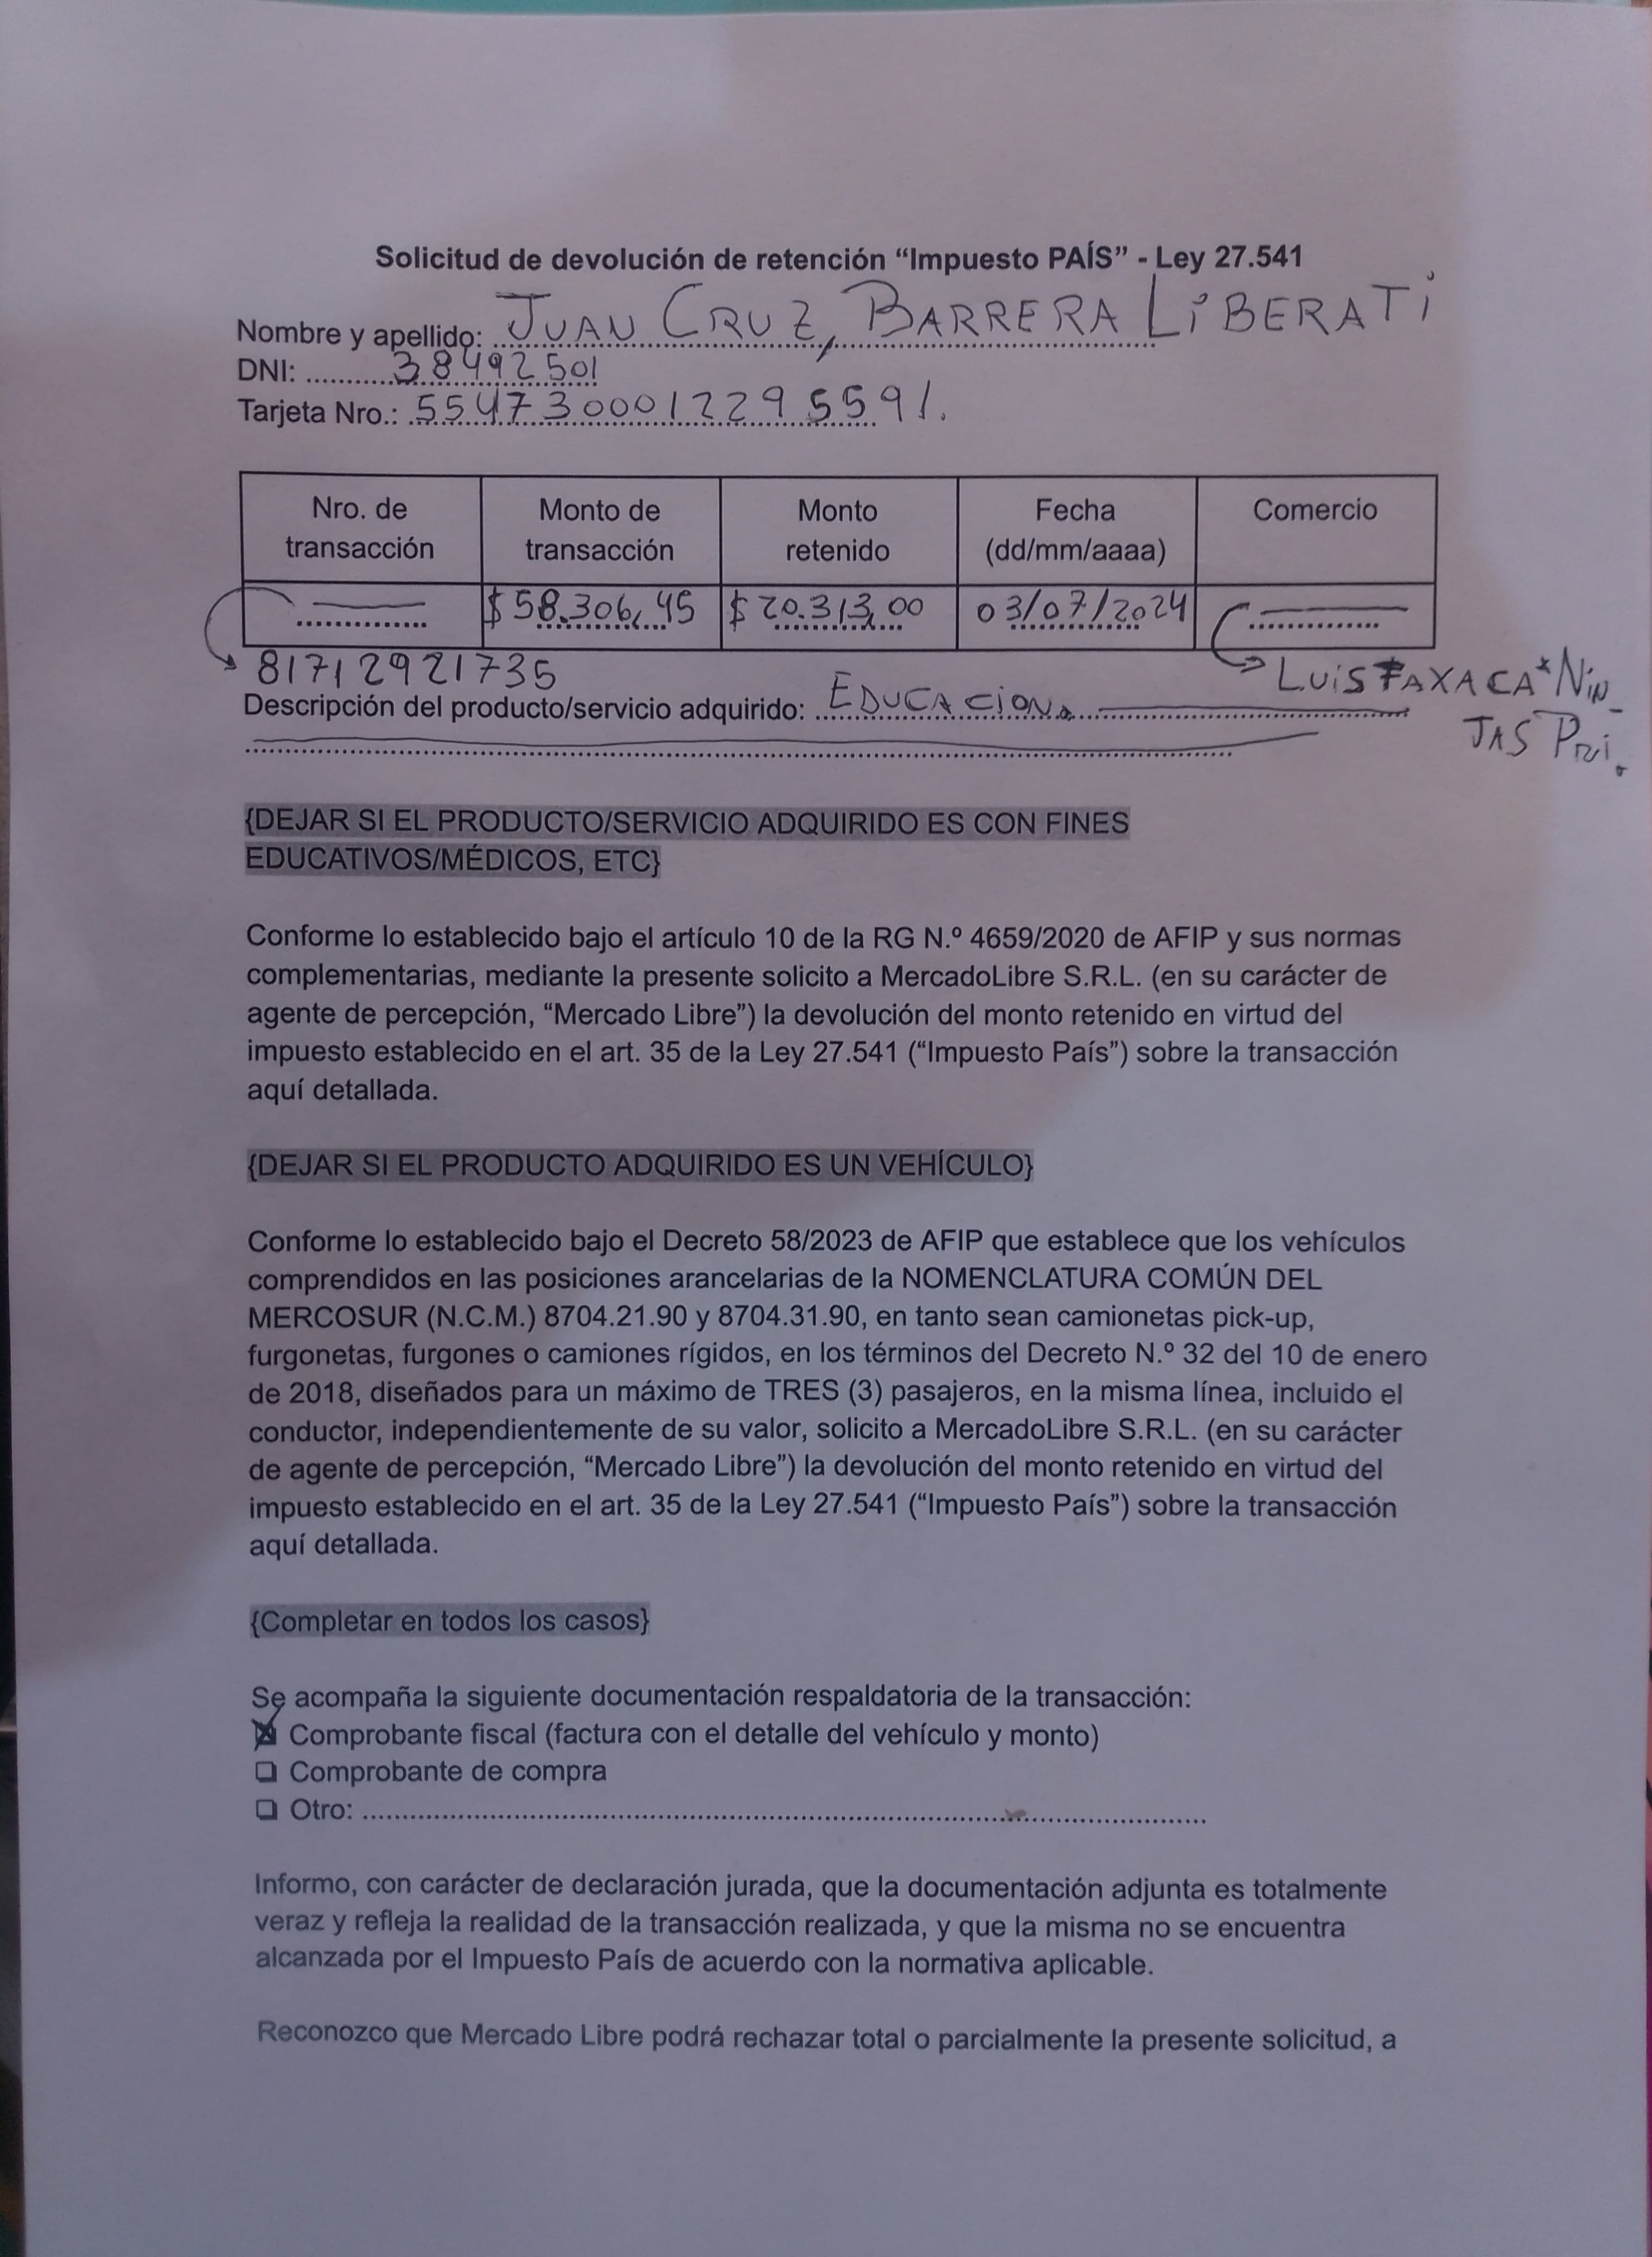 Solicitud de devolución de retención “Impuesto PAÍS” - Ley 27.541
Nombre y apellido: JUAN CRUZ, BARRERA LiBERATi
DNI: 38492501
Tarjeta Nro.: 5547300012295591.
Nro. de transacción
Monto de transacción
Monto retenido
Fecha (dd/mm/aaaa)
Comercio
$ 58.306,45
$ 20.313,00
03/07/2024
81712921735
LUiS TAXACA*NiN_
JAS PRi.
Descripción del producto/servicio adquirido: EDUCACiON.
{DEJAR SI EL PRODUCTO/SERVICIO ADQUIRIDO ES CON FINES
EDUCATIVOS/MÉDICOS, ETC}
Conforme lo establecido bajo el artículo 10 de la RG N.º 4659/2020 de AFIP y sus normas
complementarias, mediante la presente solicito a MercadoLibre S.R.L. (en su carácter de
agente de percepción, “Mercado Libre”) la devolución del monto retenido en virtud del
impuesto establecido en el art. 35 de la Ley 27.541 (“Impuesto País”) sobre la transacción
aquí detallada.
{DEJAR SI EL PRODUCTO ADQUIRIDO ES UN VEHÍCULO}
Conforme lo establecido bajo el Decreto 58/2023 de AFIP que establece que los vehículos
comprendidos en las posiciones arancelarias de la NOMENCLATURA COMÚN DEL
MERCOSUR (N.C.M.) 8704.21.90 y 8704.31.90, en tanto sean camionetas pick-up,
furgonetas, furgones o camiones rígidos, en los términos del Decreto N.º 32 del 10 de enero
de 2018, diseñados para un máximo de TRES (3) pasajeros, en la misma línea, incluido el
conductor, independientemente de su valor, solicito a MercadoLibre S.R.L. (en su carácter
de agente de percepción, “Mercado Libre”) la devolución del monto retenido en virtud del
impuesto establecido en el art. 35 de la Ley 27.541 (“Impuesto País”) sobre la transacción
aquí detallada.
{Completar en todos los casos}
Se acompaña la siguiente documentación respaldatoria de la transacción:
☒ Comprobante fiscal (factura con el detalle del vehículo y monto)
❑ Comprobante de compra
❑ Otro:
Informo, con carácter de declaración jurada, que la documentación adjunta es totalmente
veraz y refleja la realidad de la transacción realizada, y que la misma no se encuentra
alcanzada por el Impuesto País de acuerdo con la normativa aplicable.
Reconozco que Mercado Libre podrá rechazar total o parcialmente la presente solicitud, a